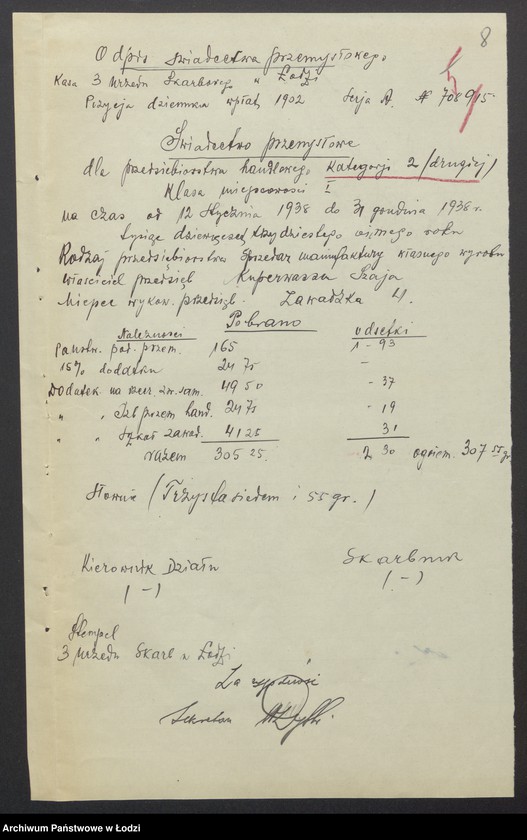 8
Odpis świadectwa przemysłowego
Kasa 3 Urzędu Skarbowego w Łodzi
Pozycja dziennika wpłat 1902 Serja A. № 708915
Świadectwo przemysłowe
dla przedsiębiorstwa handlowego Kategorji 2 (drugiej)
Klasa miejscowości I
na czas od 12 Stycznia 1938 do 31 grudnia 1938 r.
tysiąc dziewięćset trzydziestego ósmego roku
Rodzaj przedsiębiorstwa Sprzedaż manufaktury własnego wyrobu
właściciel przedsięb Kuperwasser Szaja
Miejsce wykow. przedsięb. Zawadzka 4.
Należności Pobrano odsetki
Państw. pod. przem. 165 1 - 93
15% dodatku 24 75 -
Dodatek na rzecz zw. sam. 49 50 - 37
" " Izb przem hand. 24 75 - 19
" " szkół zawod. 41 25 31
razem 305 25. 2 30 ogółem. 307 55 gr.
Słownie (Trzysta siedem i 55 gr.)
Kierownik Działu Skarbnik
(-) (-)
Stempel
3 Urzędu Skarb w Łodzi
Za zgodność
Sekretarz
Archiwum Państwowe w Łodzi